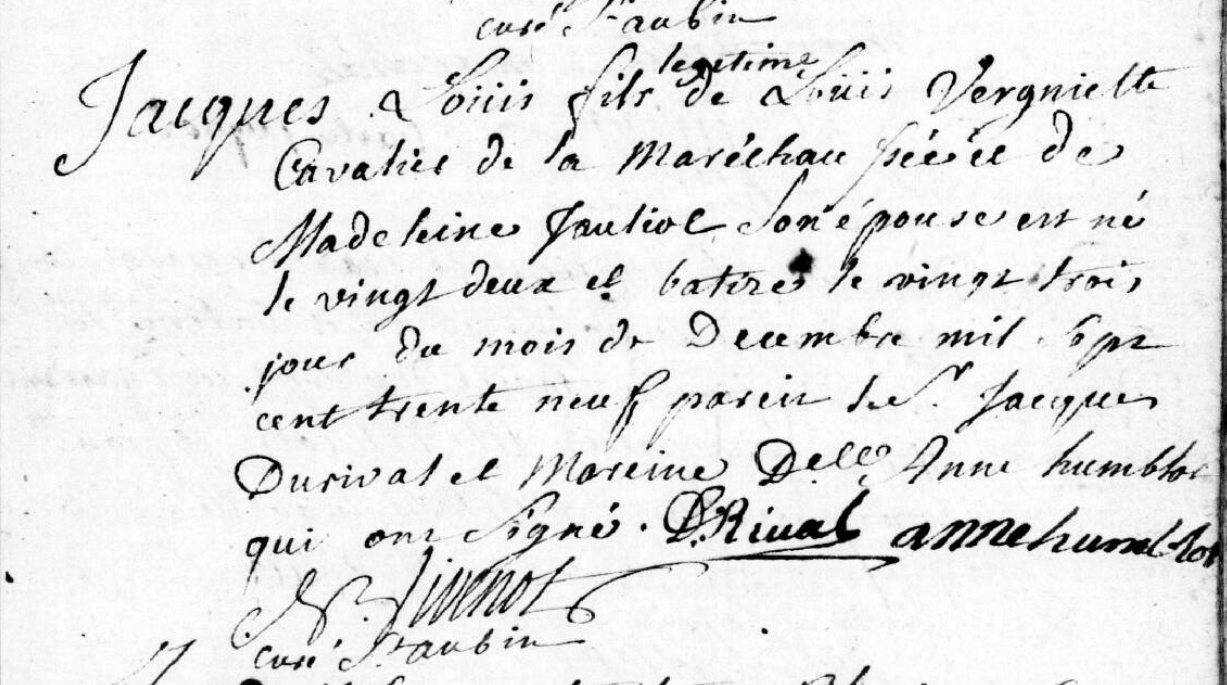 curé St aubin
legitime
Jacques Loüis fils de Loüis Vergniette
Cavalier de la Maréchau et de
Madeleine son épouse est né
le vingt deux et batizé le vingt trois
jour du mois de Decembre mil sept
cent trente neuf parein le Sr. Jacques
Durival et Mareine Delle. Anne humblot
qui ont signé. DuRival anne humblot
curé St aubin